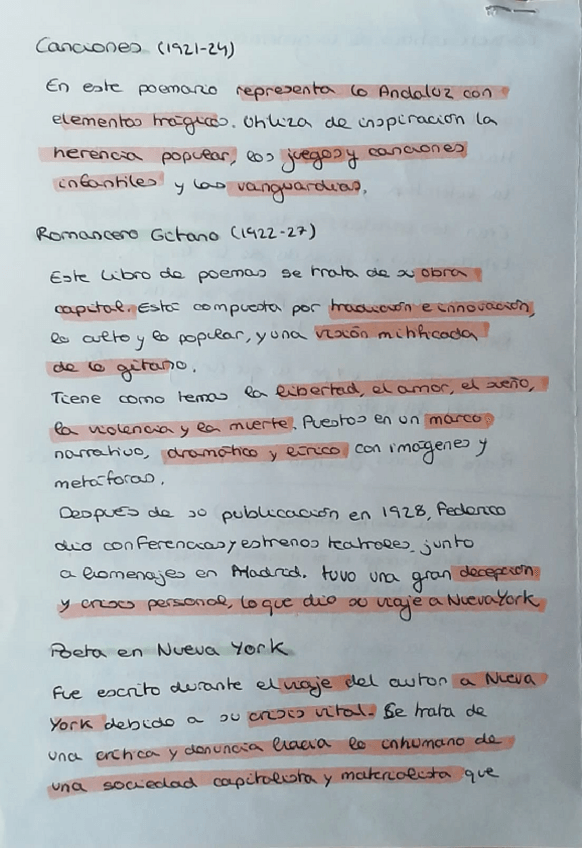 Canciones (1921-24)
En este poemario representa lo Andaluz con
elementos trágicos. Utiliza de inspiración la
herencia popular, los juegos y canciones
infantiles y las vanguardias.
Romancero Gitano (1922-27)
Este libro de poemas se trata de su obra
capital. Está compuesta por tradición e innovación,
lo culto y lo popular, y una visión mitificada
de lo gitano.
Tiene como temas la libertad, el amor, el sueño,
la violencia y la muerte. Puestos en un marco
narrativo, dramático y lírico con imágenes y
metáforas.
Después de su publicación en 1928, Federico
dio conferencias y estrenos teatrales, junto
a homenajes en Madrid. tuvo una gran decepción
y crisis personal, lo que dio su viaje a Nueva York
Poeta en Nueva York
Fue escrito durante el viaje del autor a Nueva
York debido a su crisis vital. Se trata de
una crítica y denuncia hacia lo inhumano de
una sociedad capitalista y materialista que